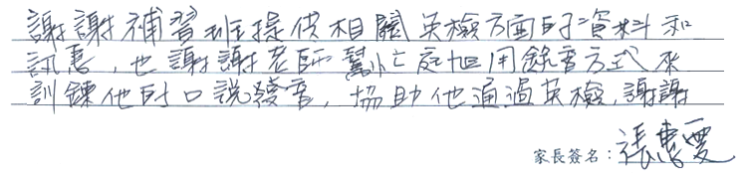 謝謝補習班提供相關英檢方面的資料和
訊息,也謝謝老師幫忙庭旭用錄音方式來
訓練他的口說發音,協助他通過英檢,謝謝
家長簽名:張惠雯